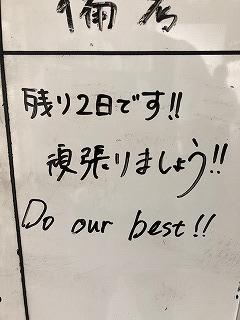 残り2日です!!
頑張りましょう!!
Do our best!!